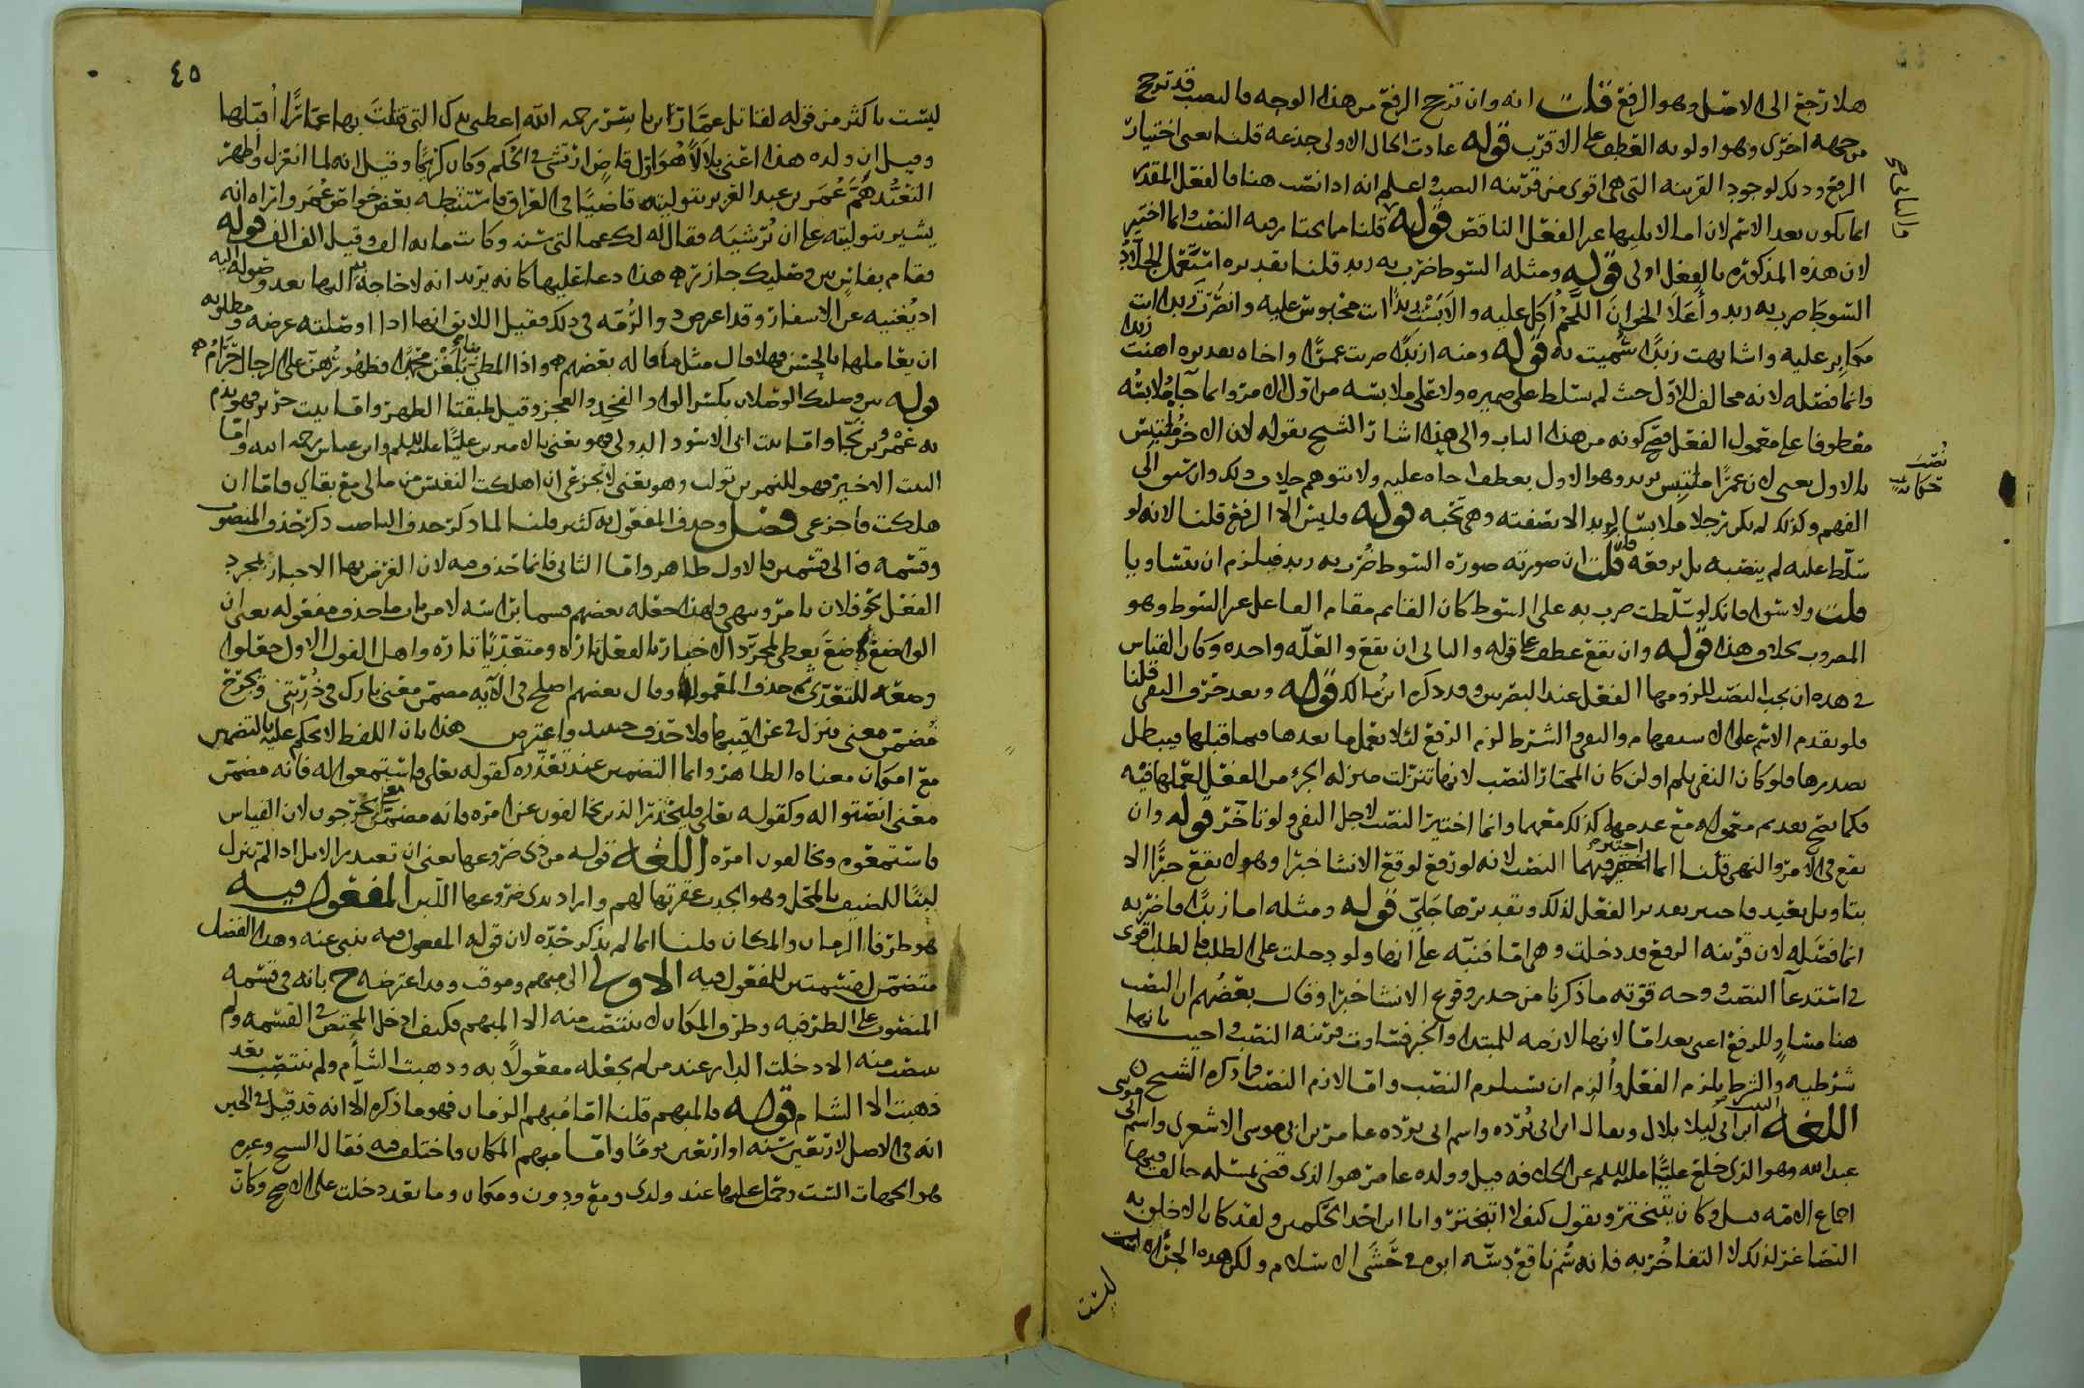 هلا رجع الى الاصل وهو الرفع قلت انه وان ترجح الرفع من هذا الوجه فالنصب قد ترجح
من جهه اخرى وهو اولويه العطف على الاقرب قوله عادت الحال الاولى جذعه قلنا يعني اختيار
الرفع وذلك لوجود القرينه التي هي اقوى من قرينه النصب واعلم انه اذا نصب هنا فالفعل المقدر
انما يكون بعد الاسم لان اما لا يليها الفعل الناقض قوله قلنا مما يختار فيه النصب وانما اختير
لان هذه المذكوره بالفعل اولى قوله ومثله السوط ضرب به زيد قلنا تقديره
السوط ضرب به زيد و الخوان اللحم اكل عليه
مكابر عليه واشابهت زيدا سميت به قوله ومنه ازيدا ضربت عمرا واخاه تقديره اهنت زيدا
وانما فصله لانه مخالف للاول حيث لم يسلط على ضميره ولا على ملابسه من اول الامر وانما جا ملابسه
معطوفا على معمول الفعل فصح كونه من هذا الباب والى هذا اشار الشيخ بقوله لان الاخر ملتبس
بالاول يعني لان عمرا ملتبس بزيد وهو الاول بعطف اخاه عليه ولا يتوهم خلاف ذلك وان سبق الى
الفهم وكذلك لم يكن رجلا ملابسا لزيد الا بصفته وهي تحبه قوله وليس الا الرفع قلنا لانه لو
سلط عليه لم ينصبه بل يرفعه فان قلت ان صورته صوره السوط ضرب به زيد فيلزم ان يتساويا
قلت ولا سوا فانك لو سلطت ضرب به على السوط كان القائم مقام الفاعل غير السوط وهو
المضروب بخلاف هذا قوله وان تقع عطف على قوله والثاني ان تقع والعله واحده وكان القياس
في هذه ان يجب النصب للزومها الفعل عند البصريين وقد ذكره ابن مالك قوله وبعد حرف النفي قلنا
فلو تقدم الاسم على الاستفهام والنفي والشرط لزم الرفع لئلا يعمل ما بعدها فيما قبلها فيبطل
تصديرها فلو كان النفي بلم او لن كان المختار النصب لانها تنزلت منزله الجزء من الفعل لعملها فيه
فكما يصح تقديم معموله مع عدمها كذلك معهما وانما اختير النصب لاجل النفي ولو تاخر قوله وان
يقع في الامر والنهي قلنا انما اختير فيهما النصب لانه لو رفع لوقع الانشا خبرا وهو لا يقع خبرا الا
بتاويل بعيد فاختير تقدير الفعل لذلك وتقديرها جلي قوله ومثله اما زيدا فاضربه
انما فصله لان قرينه الرفع قد دخلت وهي اما فنبه على انها ولو دخلت على الطلب فالطلب اقوى
في استدعا النصب ووجه قوته ما ذكرنا من حذر وقوع الانشا خبرا وقال بعضهم ان النصب
هنا مساو للرفع اعني بعد اما لانها لازمه للمبتدا والخبر فتساوت قرينه النصب واجيب بانها
شرطيه والشرط يلزم الفعل والزم ان يستلزم النصب واما لازم النصب فما ذكره الشيخ
اللغه ابن ابي ليلا بلال ويقال ابن ابي برده واسم ابي برده عامر بن ابي موسى الاشعري واسم ابي موسى
عبدالله وهو الذي خلع عليا عليه السلم عن الخلافه قيل وولده عامر هو الذي قضى بمسله خالف فيها
اجماع الامه قيل وكان يتبختر ويقول كيف لا اتبختر وانا ابن احد الحكمين ولقد كان الاخلق به
التصاغر لذلك لا التفاخر به فانه سم ناقع دسه ابوه في حشى الاسلام ولكن هذه الجراه ليست
ليست
والنباح
نصب
حكايه
٤٥
ليست باكثر من قوله لقاتل عمار بن ياسر رحمه الله اعطني يدك التي قتلت بها عمارا اقبلها
وقيل ان ولده هذا اعني بلالا هو اول قاض ارتشى في الحكم وكان كريما وقيل انه لما انعزل واظهر
التعبد هم عمر بن عبد العزيز بتوليته قاضيا في العراق فاستبطنه بعض خواص عمر واراه انه
يشير بتوليته على ان يرشيه فقال له لك عمالتي سنه وكانت مايه الف وقيل الف الف قوله
فقام بفاس بين وصليك جازر هذا دعا عليها كانه يريد انه لا حاجه به اليها بعد وصوله اليه
اذ يغنيه عن الاسفار وقد اعرض ذو الرمه في ذلك فقيل اللائق انها اذا اوصلته غرضه ومطلوبه
ان يقابلها بالحسن فهلا قال مثل ما قاله بعضهم واذا المطي بنا بلغن محمدا فظهورهن على الرجال حرام
قوله بين وصليك الوصلان بكسر الواو الفخذ والعجز وقيل طبقتا الظهر واما بيت جرير فهو يذم
به عمرو بن لجا واما بيت ابي الاسود الدولي فهو يعني بالاميرين عليا عليه السلم وابن عباس رحمه الله واما
البيت الاخير فهو للنمر بن تولب وهو يعني لا تجزعي ان اهلكت النفيس من مالي مع بقاي فاما ان
هلكت فاجزعي فصل وحذف المفعول به كثير قلنا لما ذكر حذف الناصب ذكر حذف المنصوب
وقسمه الى قسمين فالاول ظاهر واما الثاني فانما حذف فيه لان الغرض بها الاخبار بمجرد
الفعل نحو فلان يامر وينهى ولهذا جعله بعضهم قسما براسه لا من باب ما حذف مفعوله يعني ان
الواضع وضع يعطي لمجرد الاخبار بالفعل تاره ومتعديا تاره واهل القول الاول جعلوا
وضعه للتعدي ثم حذف المعمول وقال بعضهم اصلح في الايه مضمن معنى بارك في ذريتي ويجرح
مضمن معنى ينزل في عراقيبها فلا حذف حينئذ واعترض هذا بان اللفظ لا يحكم عليه بالتضمين
مع امكان معناه الظاهر وانما التضمين عند تعذره كقوله تعلى فاستمعوا له فانه مضمن
معنى انصتوا له وكقوله تعلى فليحذر الذين يخالفون عن امره فانه مضمن معنى يخرجون لان القياس
فاستمعوه ويخالفون امره اللغه قوله من ذي ضروعها يعني ان تعتذر الابل اذا لم تنزل
لبنا للضيف بالمحل وهو الجدب عقرتها لهم واراد بذي ضروعها اللبن المفعول فيه
هو ظرفا الزمان والمكان قلنا انما لم يذكر حده لان قوله المفعول فيه ينبي عنه وهذا الفصل
متضمن لقسمتين للمفعول فيه الاولى الى مبهم وموقت وقد اعترضه ح بانه في قسمه
المنصوب على الظرفيه وظرف المكان لا ينتصب منه الا المبهم فكيف ادخل المختص في القسمه ولم
ينصب منه الا دخلت الدار عند من لم يجعله مفعولا به وذهبت الشام ولم ينتصب بعد
ذهبت الا الشام قوله فالمبهم قلنا اما مبهم الزمان فهو ما ذكره الا انه قد قيل في الحين
انه في الاصل لاربعين سنه او اربعين يوما واما مبهم المكان فاختلف فيه فقال الشيخ وغيره
هو الجهات الست وحمل عليها عند ولدى ومع ودون ومكان وما بعد دخلت على الاصح وكان